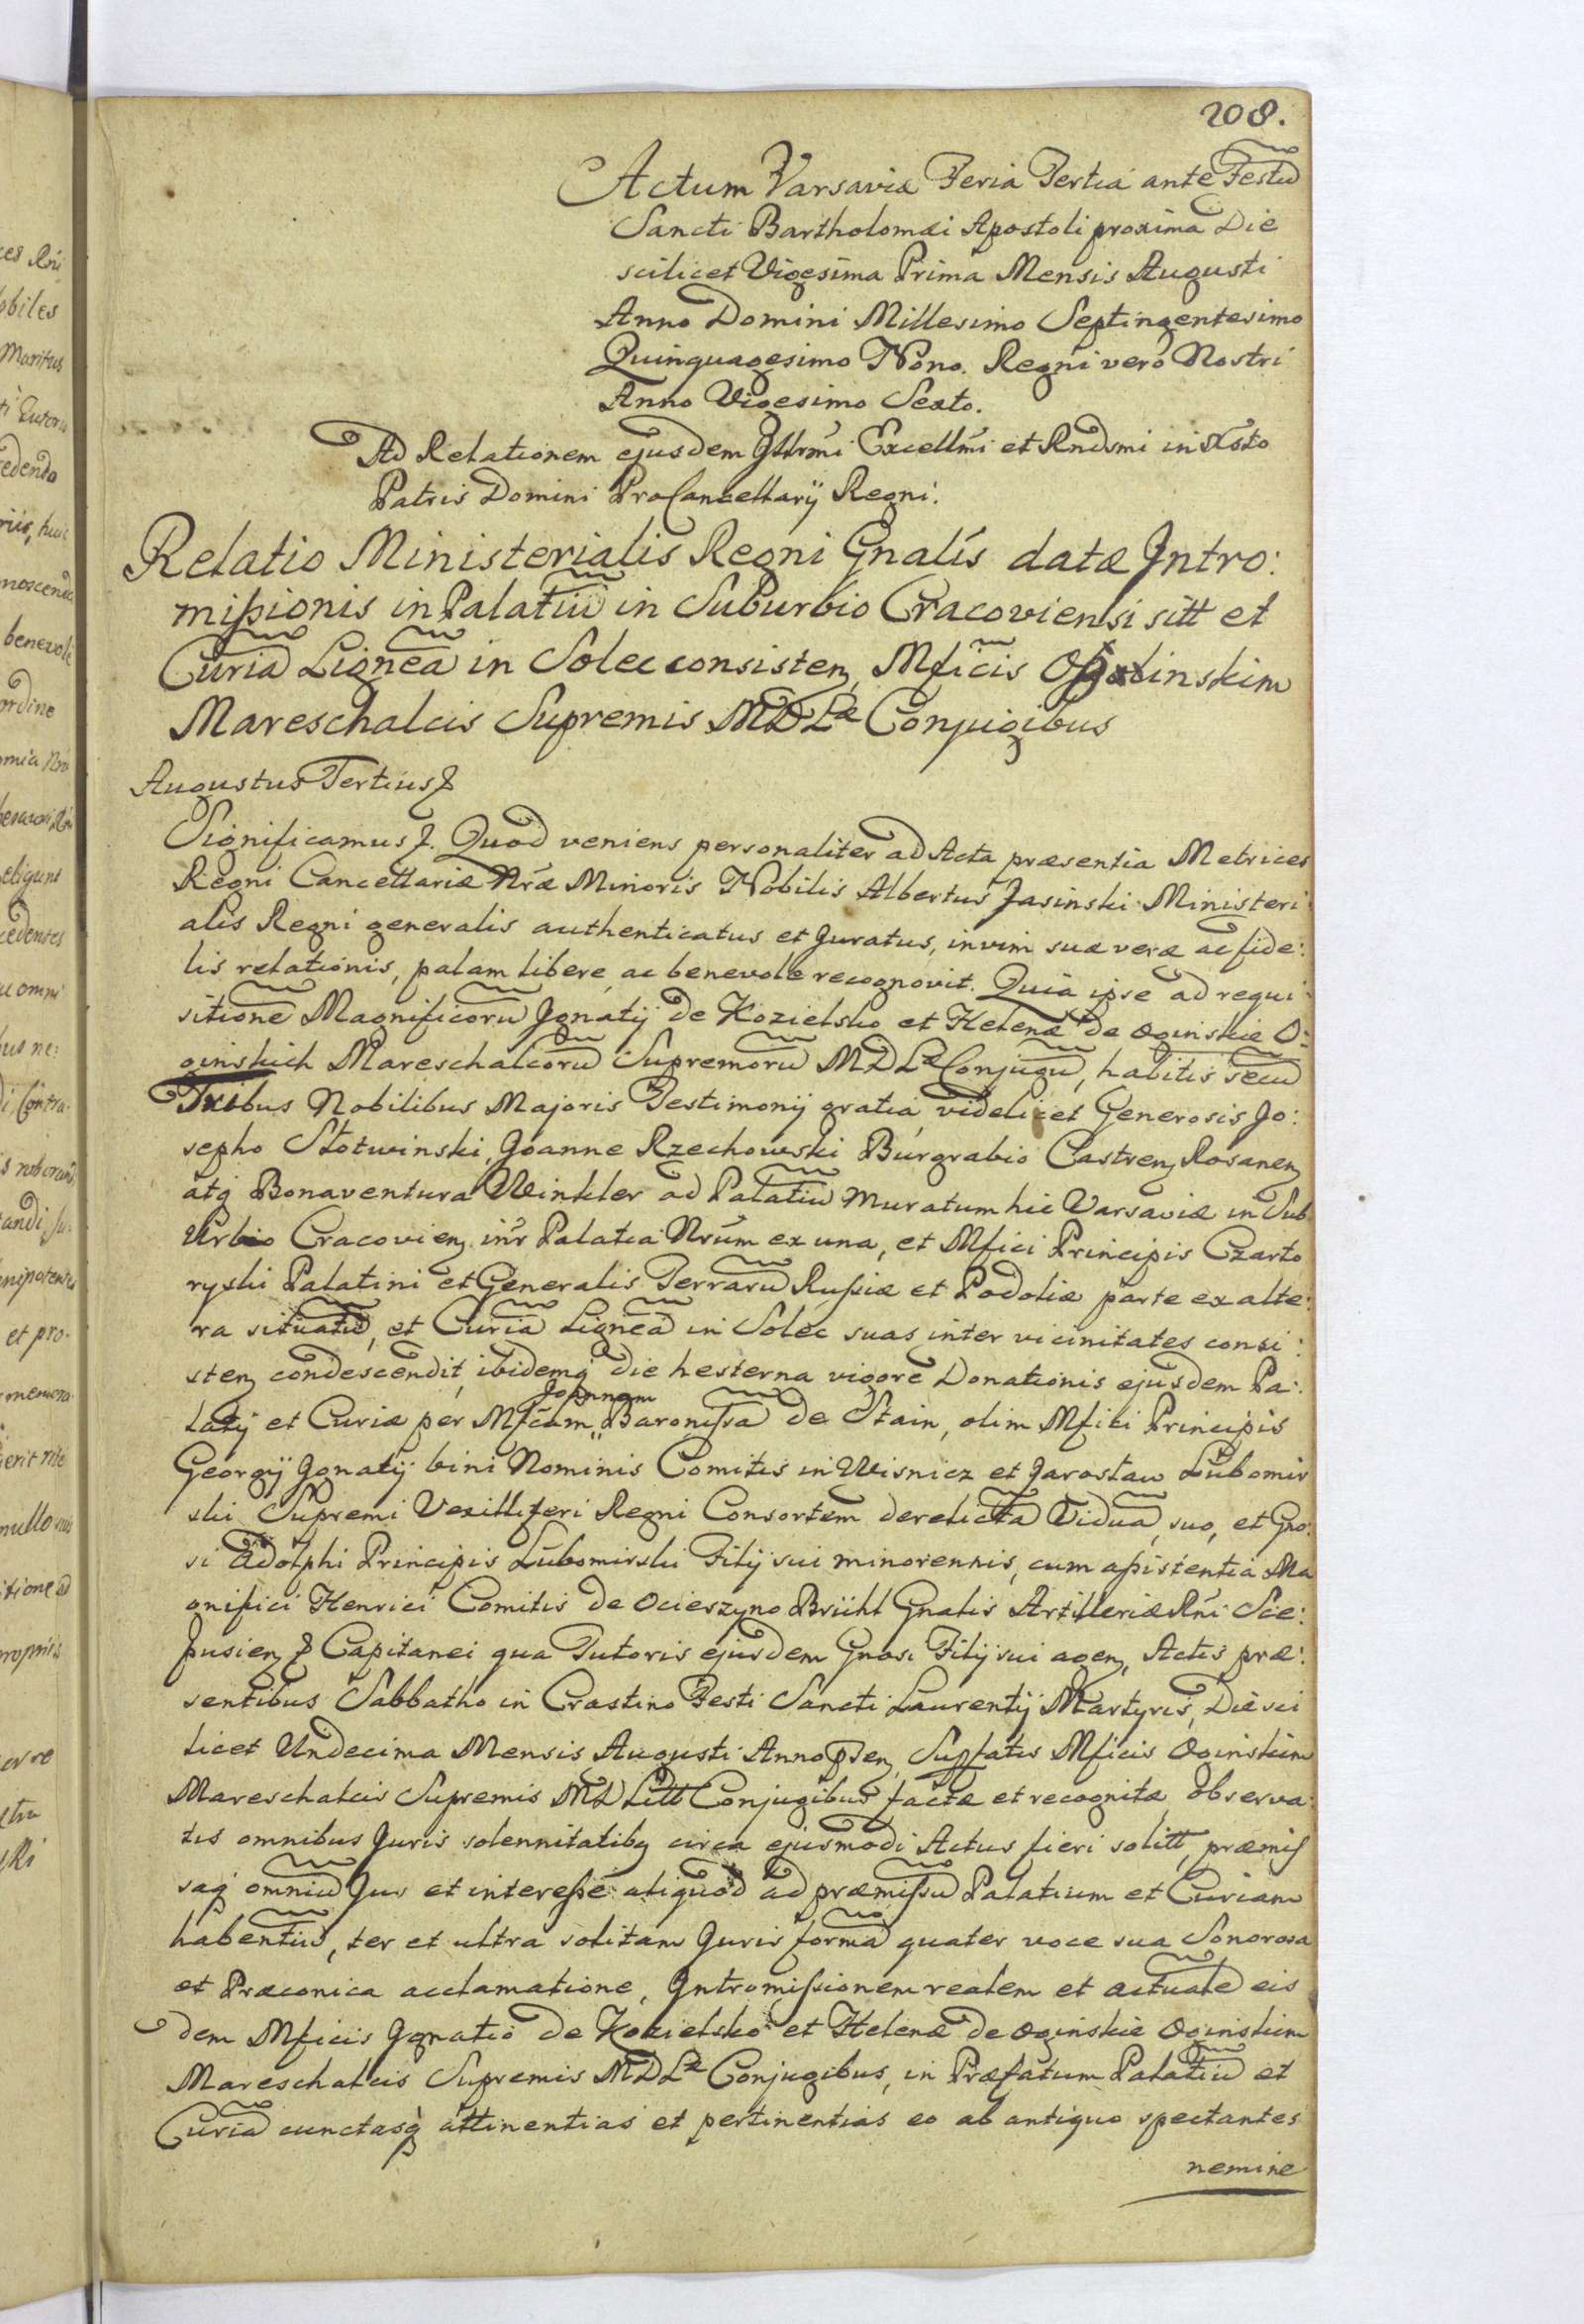 208.
Actum Varsaviæ Feria Tertia ante Festū
Sancti Bartholomæi Apostoli proxima Die
scilicet Vigesima Prima Mensis Augusti
Anno Domini Millesimo Septingentesimo
Quinquagesimo Nono. Regni vero Nostri
Anno Vigesimo Sexto.
Ad Relationem ejusdem Illrmi Excellmi et Rndsmi in Xsto
Patris Domini ProCancellarij Regni.
Relatio Ministerialis Regni Gnalis datæ Intro:
missionis in Palatiū in SuBurbio Cracoviensi sitt et
Curiā Ligneā in Solec consisten, Mficis Oginskim
Mareschalcis Supremis MDLæ Conjugibus
Augustus Tertius
Significamus. Quod veniens personaliter ad Acta præsentia Metrices
Regni Cancellariæ Nræ Minoris Nobilis Albertus Jasinski Ministeri:
alis Regni generalis authenticatus et Juratus, in vim suæ veræ ac fide:
lis relationis, palam libere ac benevole recognovit. Quia ipse ad requi:
sitionē Magnificorū Jgnatij de Kozielsko et Helenæ de Oginskie O:
ginskich Mareschalcorū Supremorū MDLæ Conjugū, habitis secū
Tribus Nobilibus Majoris Testimonij gratia, videlicet Generosis Jo:
sepho Słotwinski, Joanne Rzechowski Burgrabio Castren Rosanen
atq Bonaventura Winkler ad Palatiū Muratum hic Varsaviæ in Sub
Urbio Cracovien inr Palatia Nrum ex una, et Mfici Principis Czarto
ryski Palatini et Generalis Terrarū Russiæ et Podoliæ parte ex alte:
ra situatū, et Curiā Ligneā in Solec suas inter vicinitates consi:
sten condescendit, ibidemq die hesterna vigore Donationis ejusdem Pa:
Joannam
latij et Curiæ per Mficam Baronissā de Stain, olim Mfici Principis
Georgij Jgnatij bini Nominis Comitis in Wisnicz et Jarosław Lubomir
ski Supremi Vexilliferi Regni Consortem derelictā Viduā, suo, et Gno:
si Adolphi Principis Lubomirski Filij sui minorennis, cum assistentia Ma
gnifici Henrici Comitis de Ocieszyno Brühl Gnalis Artilleriæ Rni Sce:
pusien Capitanei qua Tutoris ejusdem Gnosi Filij sui agen, Actis præ:
sentibus Sabbatho in Crastino Festi Sancti Laurentij Martyris, Die sci
licet Undecima Mensis Augusti Anno psen, Suprafatis Mficis Oginskim
Mareschalcis Supremis MDLitt Conjugibus factæ et recognitæ, observa:
tis omnibus Juris solennitatibq circa ejusmodi Actus fieri solitt, præmis
saq omniū Jus et interesse aliquod ad præmissū Palatium et Curiam
habentiū, ter et ultra solitam Juris formā quater voce sua Sonorosa
et Præconica acclamatione, Jntromissionem realem et actualē eis
dem Mficis Jgnatio de Kozielsko et Helenæ de Oginskie Oginskim
Mareschalcis Supremis MDLæ Conjugibus, in Præfatum Palatiū et
Curiā cunctasq attinentias et pertinentias eo ab antiquo spectantes
nemine